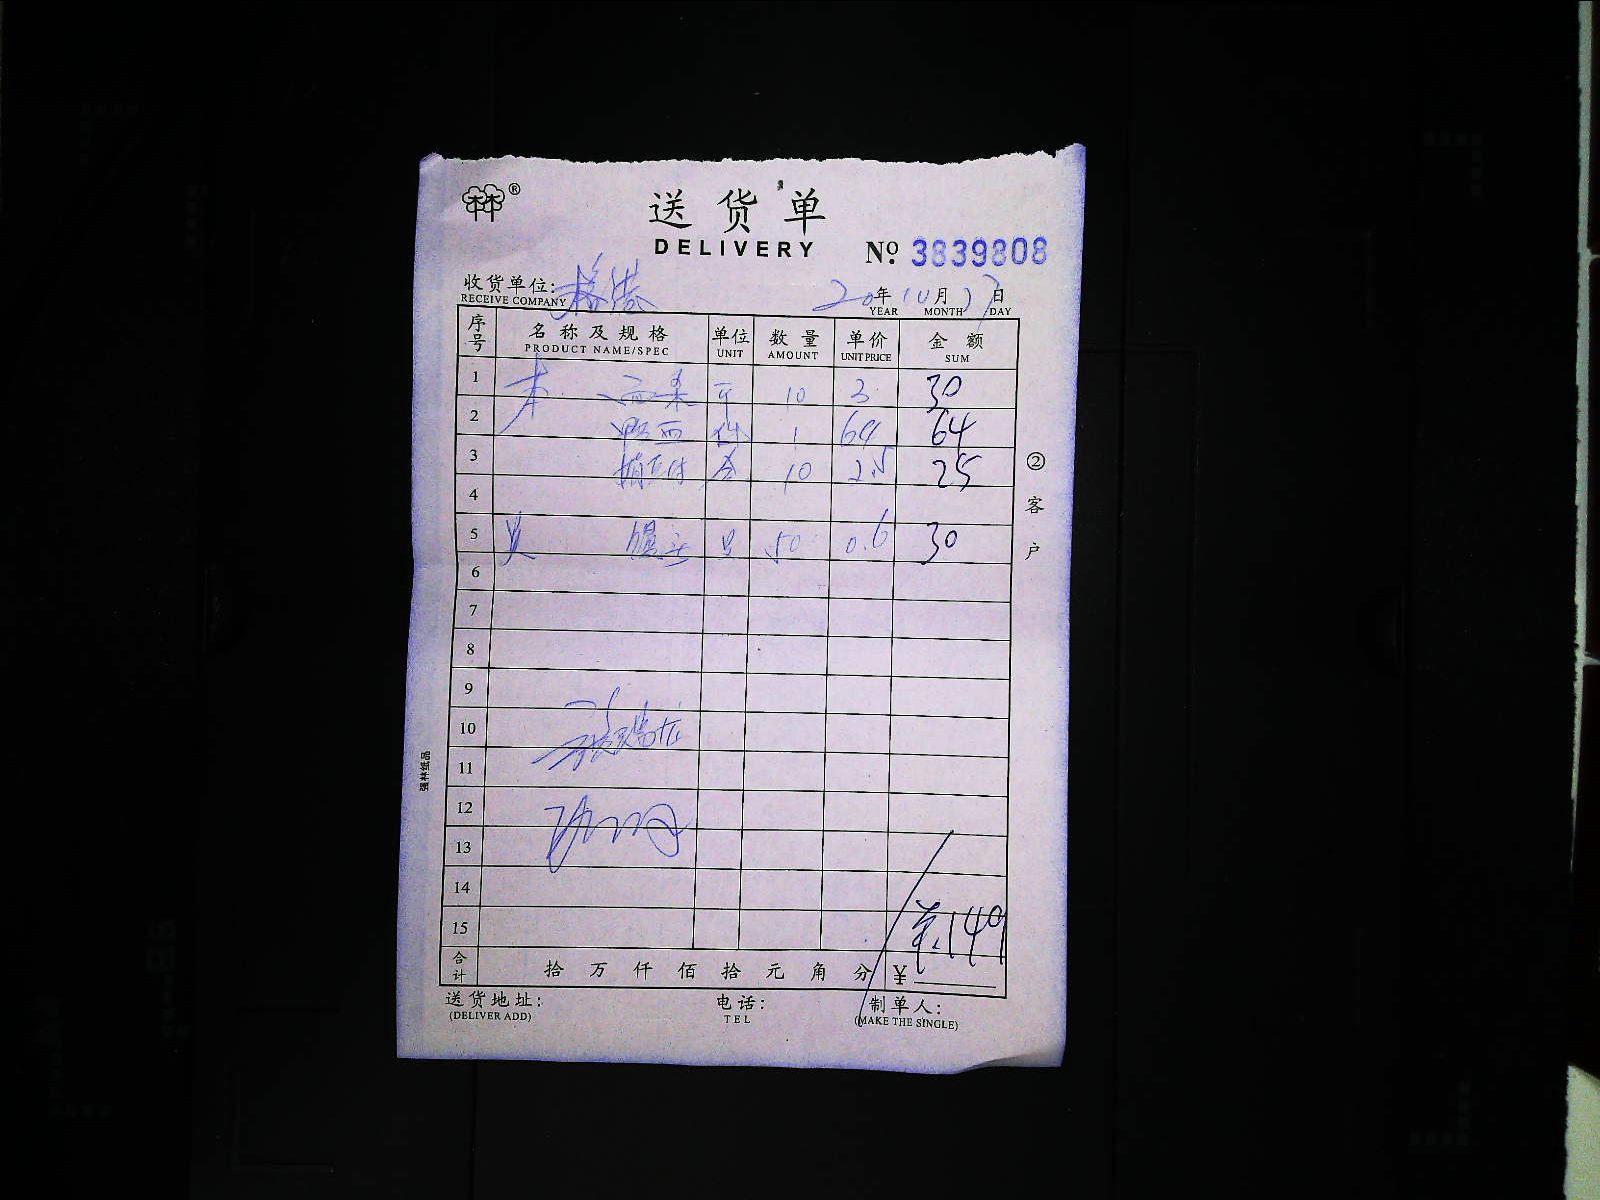 ®
送货单
DELIVERY
№ 3839808
收货单位:
RECEIVE COMPANY
20年10月27日
YEAR MONTH DAY
序号 名称及规格 单位 数量 单价 金额
PRODUCT NAME/SPEC UNIT AMOUNT UNIT PRICE SUM
1 10 3 30
2 1 64 64
3 10 2.5 25
4
5 馒头 只 50 0.6 30
6
7
8
9
10
11
12
13
14
15 149
合计 拾万仟佰拾元角分 ¥
送货地址: 电话: 制单人:
(DELIVER ADD) TEL (MAKE THE SINGLE)
②客户
强林纸品